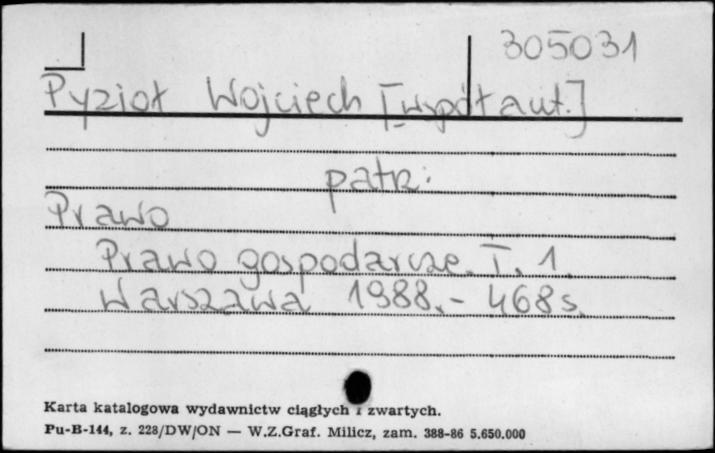 305031
Pyzioł Wojciech [współaut.]
patrz:
Prawo
Prawo gospodarcze. T. 1.
Warszawa 1988.- 468 s.
Karta katalogowa wydawnictw ciągłych i zwartych.
Pu-B-144, z. 228/DW/ON — W.Z.Graf. Milicz, zam. 388-86 5.650.000